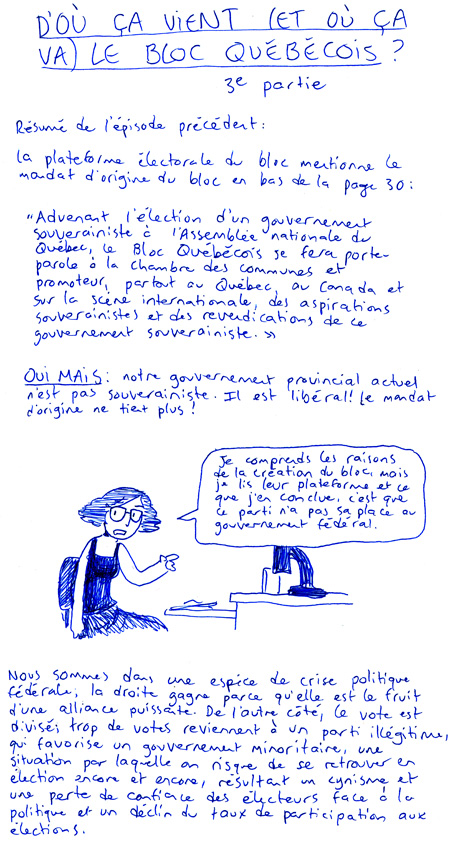 D'OÙ ÇA VIENT (ET OÙ ÇA
VA) LE BLOC QUÉBÉCOIS ?
3e partie
Résumé de l'épisode précédent :
La plateforme électorale du bloc mentionne le
mandat d'origine du bloc en bas de la page 30 :
"Advenant l'élection d'un gouvernement
souverainiste à l'Assemblée nationale du
Québec, le Bloc Québécois se fera porte-
parole à la chambre des communes et
promoteur, partout au Québec, au Canada et
sur la scène internationale, des aspirations
souverainistes et des revendications de ce
gouvernement souverainiste. »
OUI MAIS : notre gouvernement provincial actuel
n'est pas souverainiste. Il est libéral! Le mandat
d'origine ne tient plus !
Je comprends les raisons
de la création du bloc, mais
je lis leur plateforme et ce
que j'en conclue, c'est que
ce parti n'a pas sa place au
gouvernement fédéral.
Nous sommes dans une espèce de crise politique
fédérale; la droite gagne parce qu'elle est le fruit
d'une alliance puissante. De l'autre côté, le vote est
divisé; trop de votes reviennent à un parti illégitime,
qui favorise un gouvernement minoritaire, une
situation par laquelle on risque de se retrouver en
élection encore et encore, résultant un cynisme et
une perte de confiance des électeurs face à la
politique et un déclin du taux de participation aux
élections.